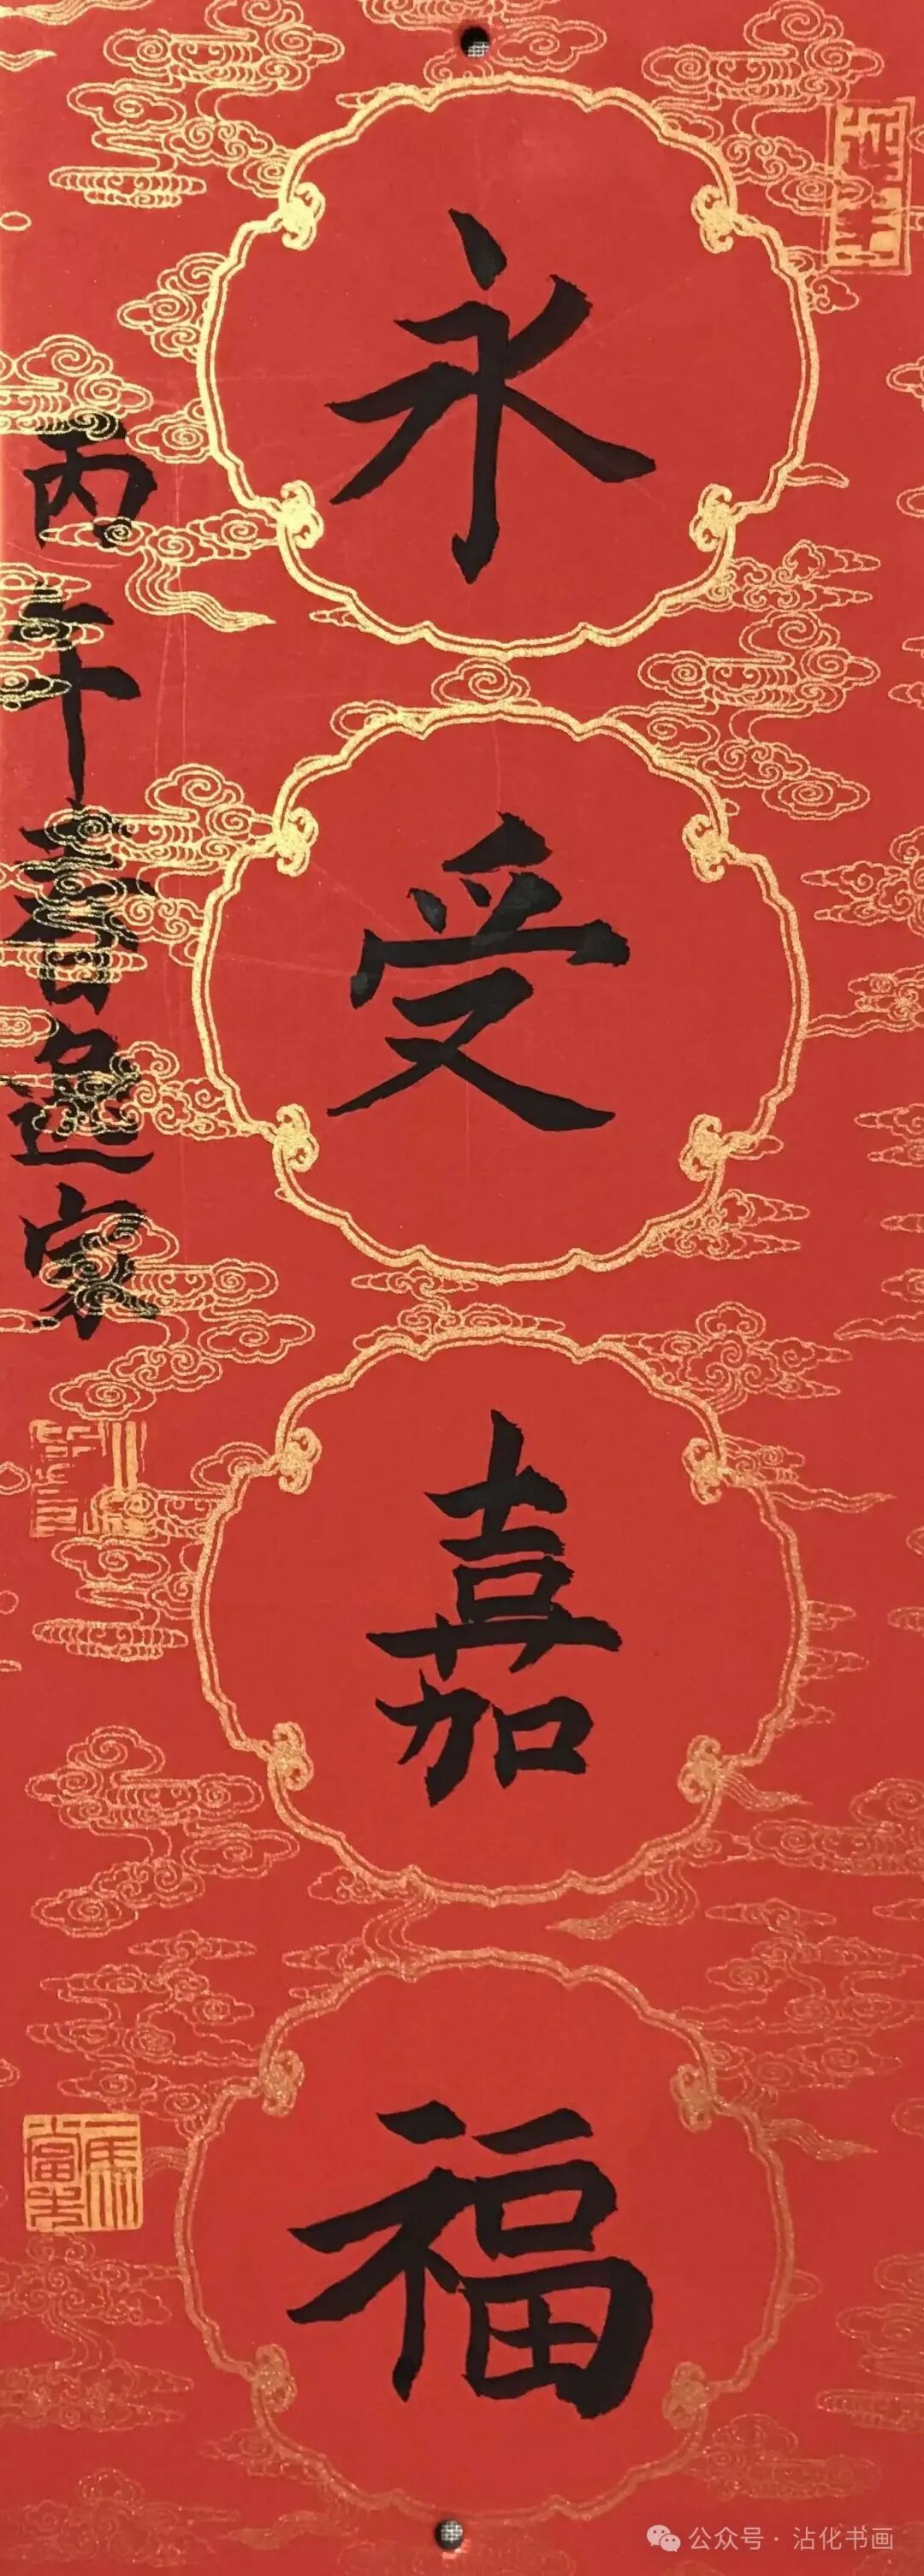 永受嘉福
丙午春逸家
公众号·沾化书画